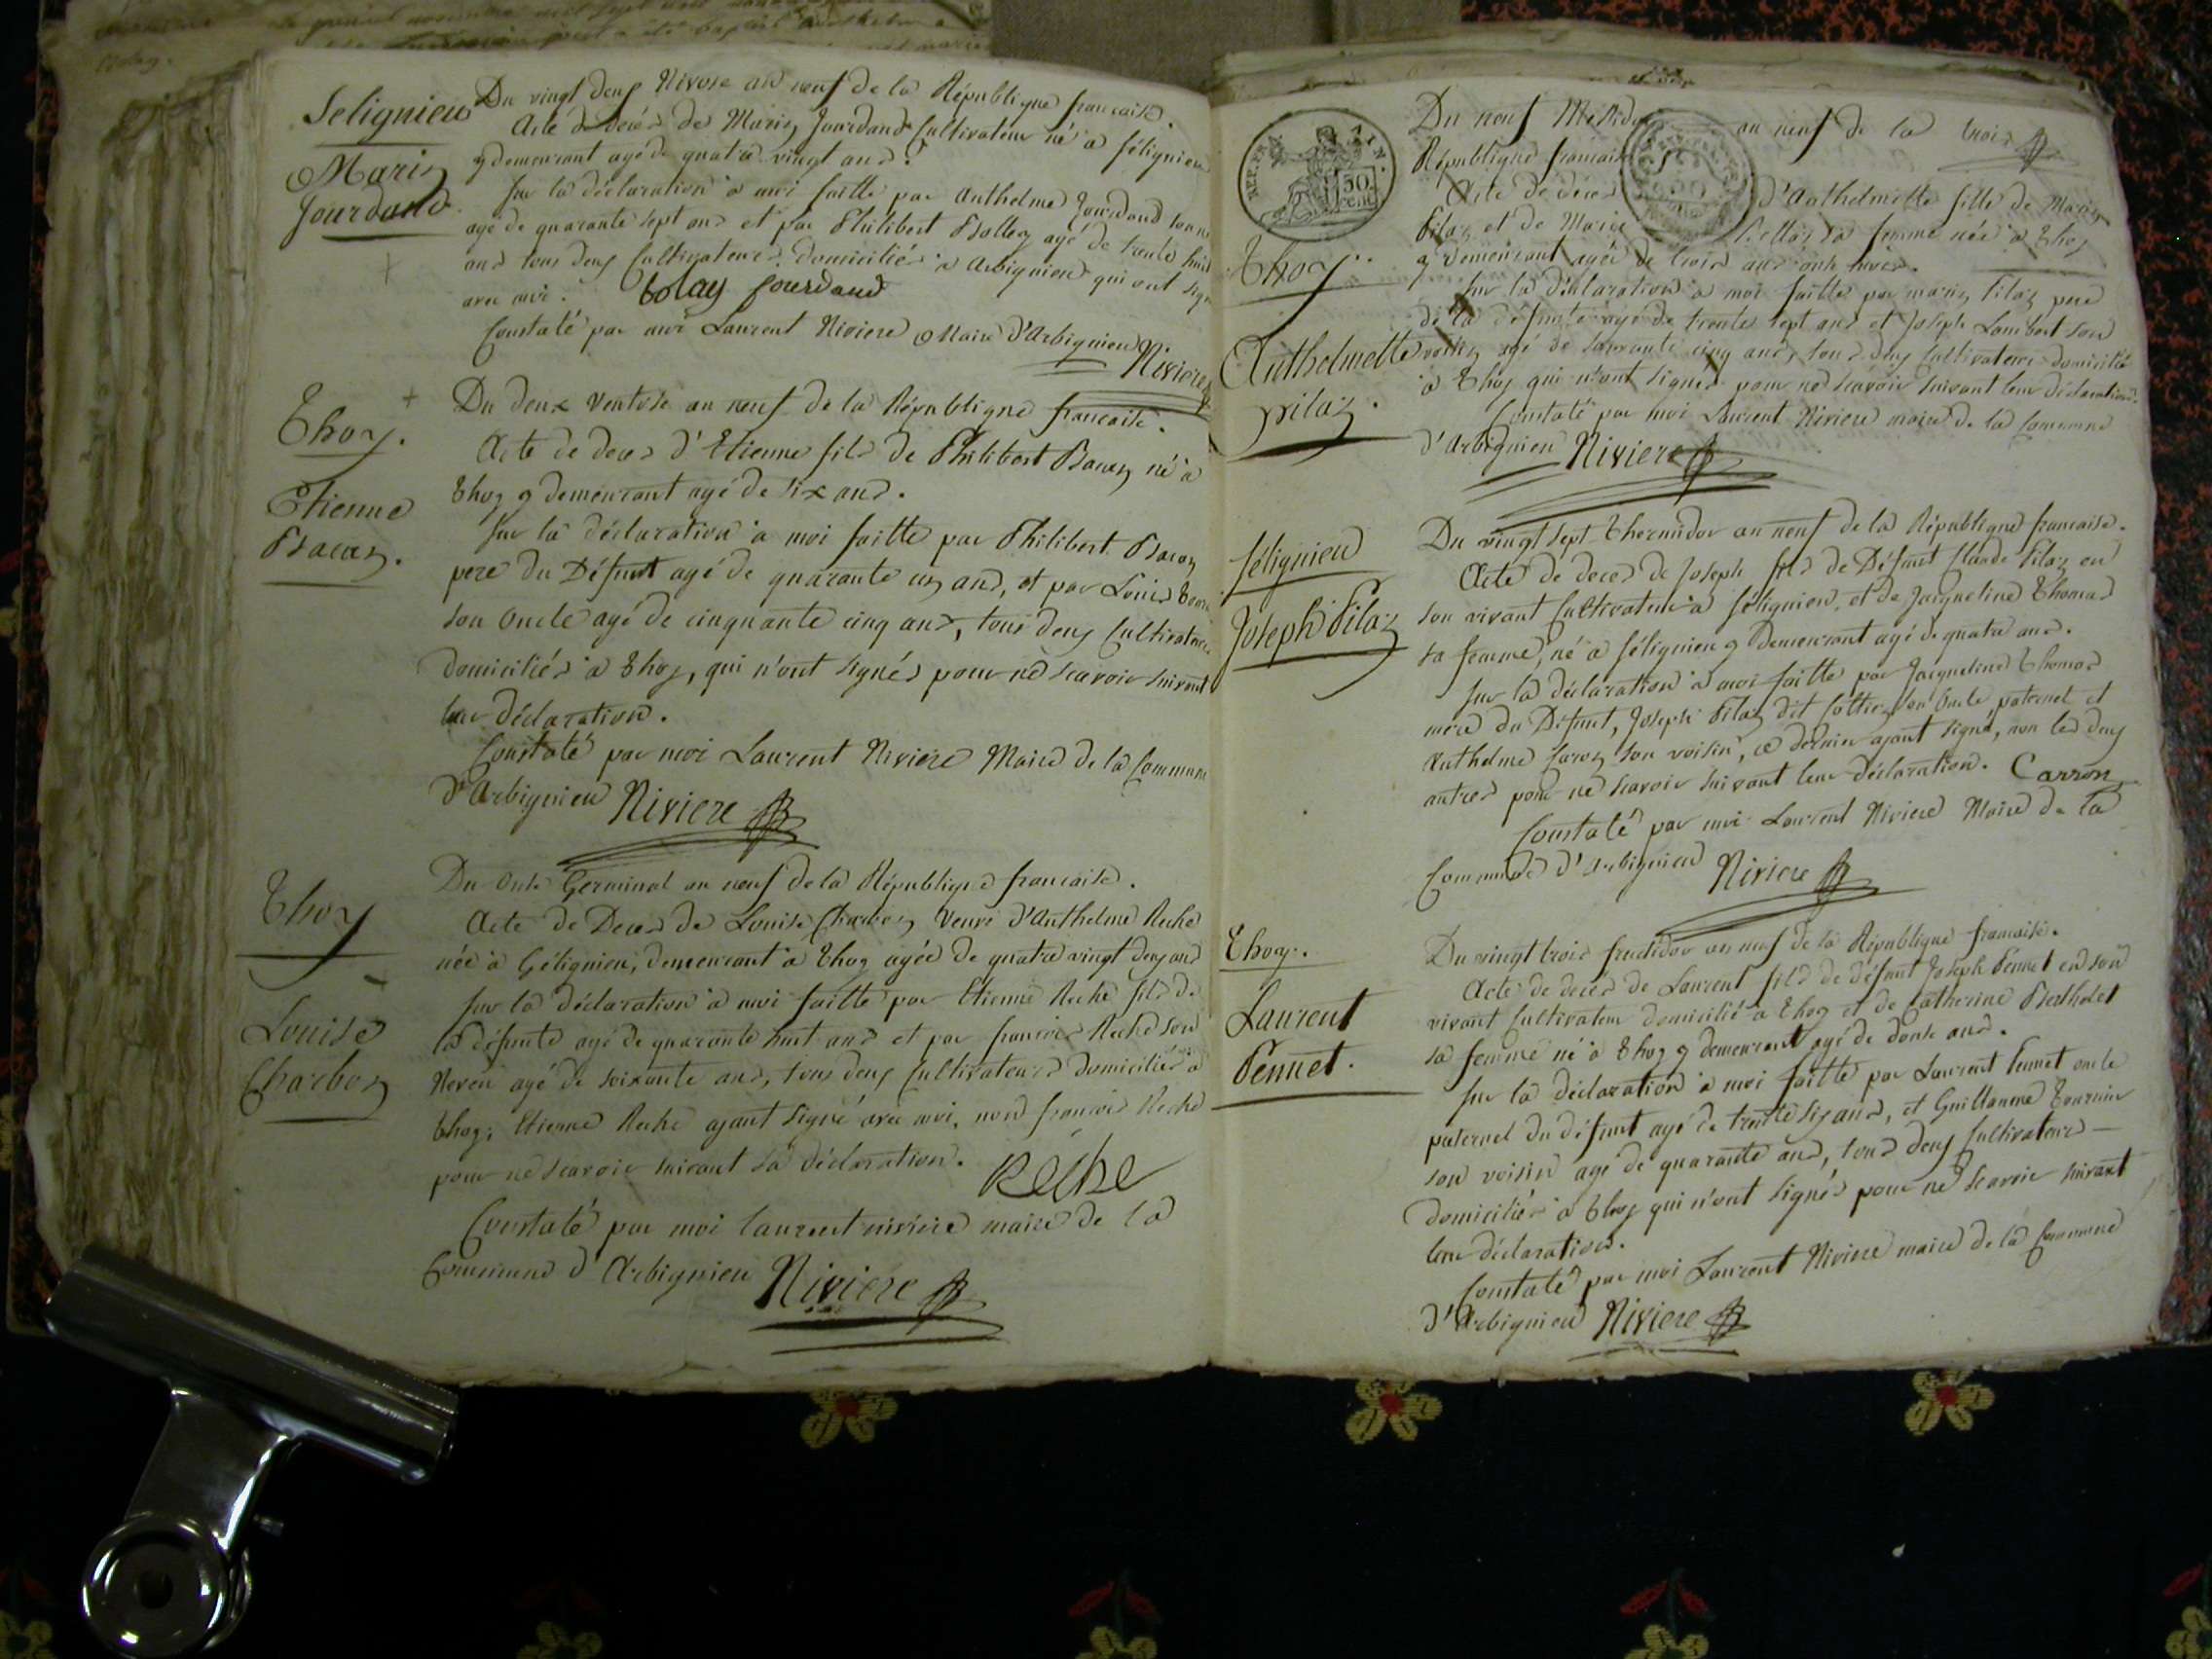 Selignieu
Marin
Jourdand
Du vingt deux Nivose an neuf de la République francaise.
Acte de deces de Marin Jourdand Cultivateur né a sélignieu
y demeurant agé de quatre vingt ans.
sur la déclaration a moi faitte par Anthelme Jourdand son ne
agé de quarante sept ans et par Philibert Bolley agé de trente huit
ans tous deux Cultivateurs domiciliés a Arbignieu qui ont sign
avec moi. bolay Jourdand
Constaté par moi Laurent Riviere Maire d'Arbignieu.
Riviere
Thoy.
Etienne
Bacon.
Du deux Ventose an neuf de la République francaise.
Acte de deces d'Etienne fils de Philibert Bacon né a
thoy y demeurant agé de six ans.
sur la déclaration a moi faitte par Philibert Bacon
pere du Défunt agé de quarante un ans, et par Louis
son Oncle agé de cinquante cinq ans, tous deux Cultivateurs
domiciliés a thoy, qui n'ont signés pour ne scavoir suivant
leur déclaration.
Constaté par moi Laurent Riviere Maire de la Commune
d'Arbignieu Riviere
Thoy
Louise
Charbon
Du Onze Germinal an neuf de la République francaise.
Acte de Deces de Louise Charbon Veuve d'Anthelme Reche
née a Sélignieu, demeurant a thoy agée de quatre vingt deux ans
sur la déclaration a moi faitte par Etienne Reche fils de
la défunte agé de quarante huit ans et par francois Reche son
Neveu agé de soixante ans, tous deux Cultivateurs domiciliés a
thoy; Etienne Reche ayant signé avec moi, non francois Reche
pour ne scavoir suivant sa déclaration. Réche
Constaté par moi laurent riviere maire de la
Commune d'Arbignieu Riviere
REP. FRA. AIN.
50. cent
Thoy.
Anthelmette
pilaz.
Du neuf Messidor an neuf de la trois
République francaise
Acte de deces d'Anthelmette fille de Marin
Pilaz et de Marie sa femme née a thoy
y demeurant agée de trois ans onze mois.
sur la déclaration a moi faitte par marin Pilaz pere
de la défunte agé de trente sept ans et Joseph Lambert son
voisin agé de soixante cinq ans, tous deux Cultivateurs domiciliés
a thoy qui n'ont signés pour ne scavoir suivant leur déclaration.
Constaté par moi Laurent Riviere maire de la Commune
d'Arbignieu Riviere
sélignieu
Joseph Pilaz
Du vingt sept thermidor an neuf de la République francaise.
Acte de deces de Joseph fils de Défunt Claude Pilaz en
son vivant Cultivateur a sélignieu, et de Jacqueline Thomas
sa femme, né a sélignieu y demeurant agé de quatre ans.
sur la déclaration a moi faitte par Jacqueline thomas
mere du Défunt, Joseph Pilaz dit son Oncle paternel et
Anthelme Caron son voisin, ce dernier ayant signé, non les deux
autres pour ne scavoir suivant leur déclaration. Carron
Constaté par moi Laurent Riviere Maire de la
Commune d'Arbignieu Riviere
Thoy.
Laurent
Pennet.
Du vingt trois fructidor an neuf de la République francaise.
Acte de deces de Laurent fils de défunt Joseph Pennet en son
vivant Cultivateur domicilié a thoy et de Catherine Berthelet
sa femme né a thoy y demeurant agé de douze ans.
sur la déclaration a moi faitte par Laurent Pennet oncle
paternel du défunt agé de trente six ans, et Guillaume tournier
son voisin agé de quarante ans, tous deux Cultivateurs
domiciliés a thoy qui n'ont signés pour ne scavoir suivant
leur déclaration.
Constaté par moi Laurent Riviere maire de la Commune
d'Arbignieu Riviere